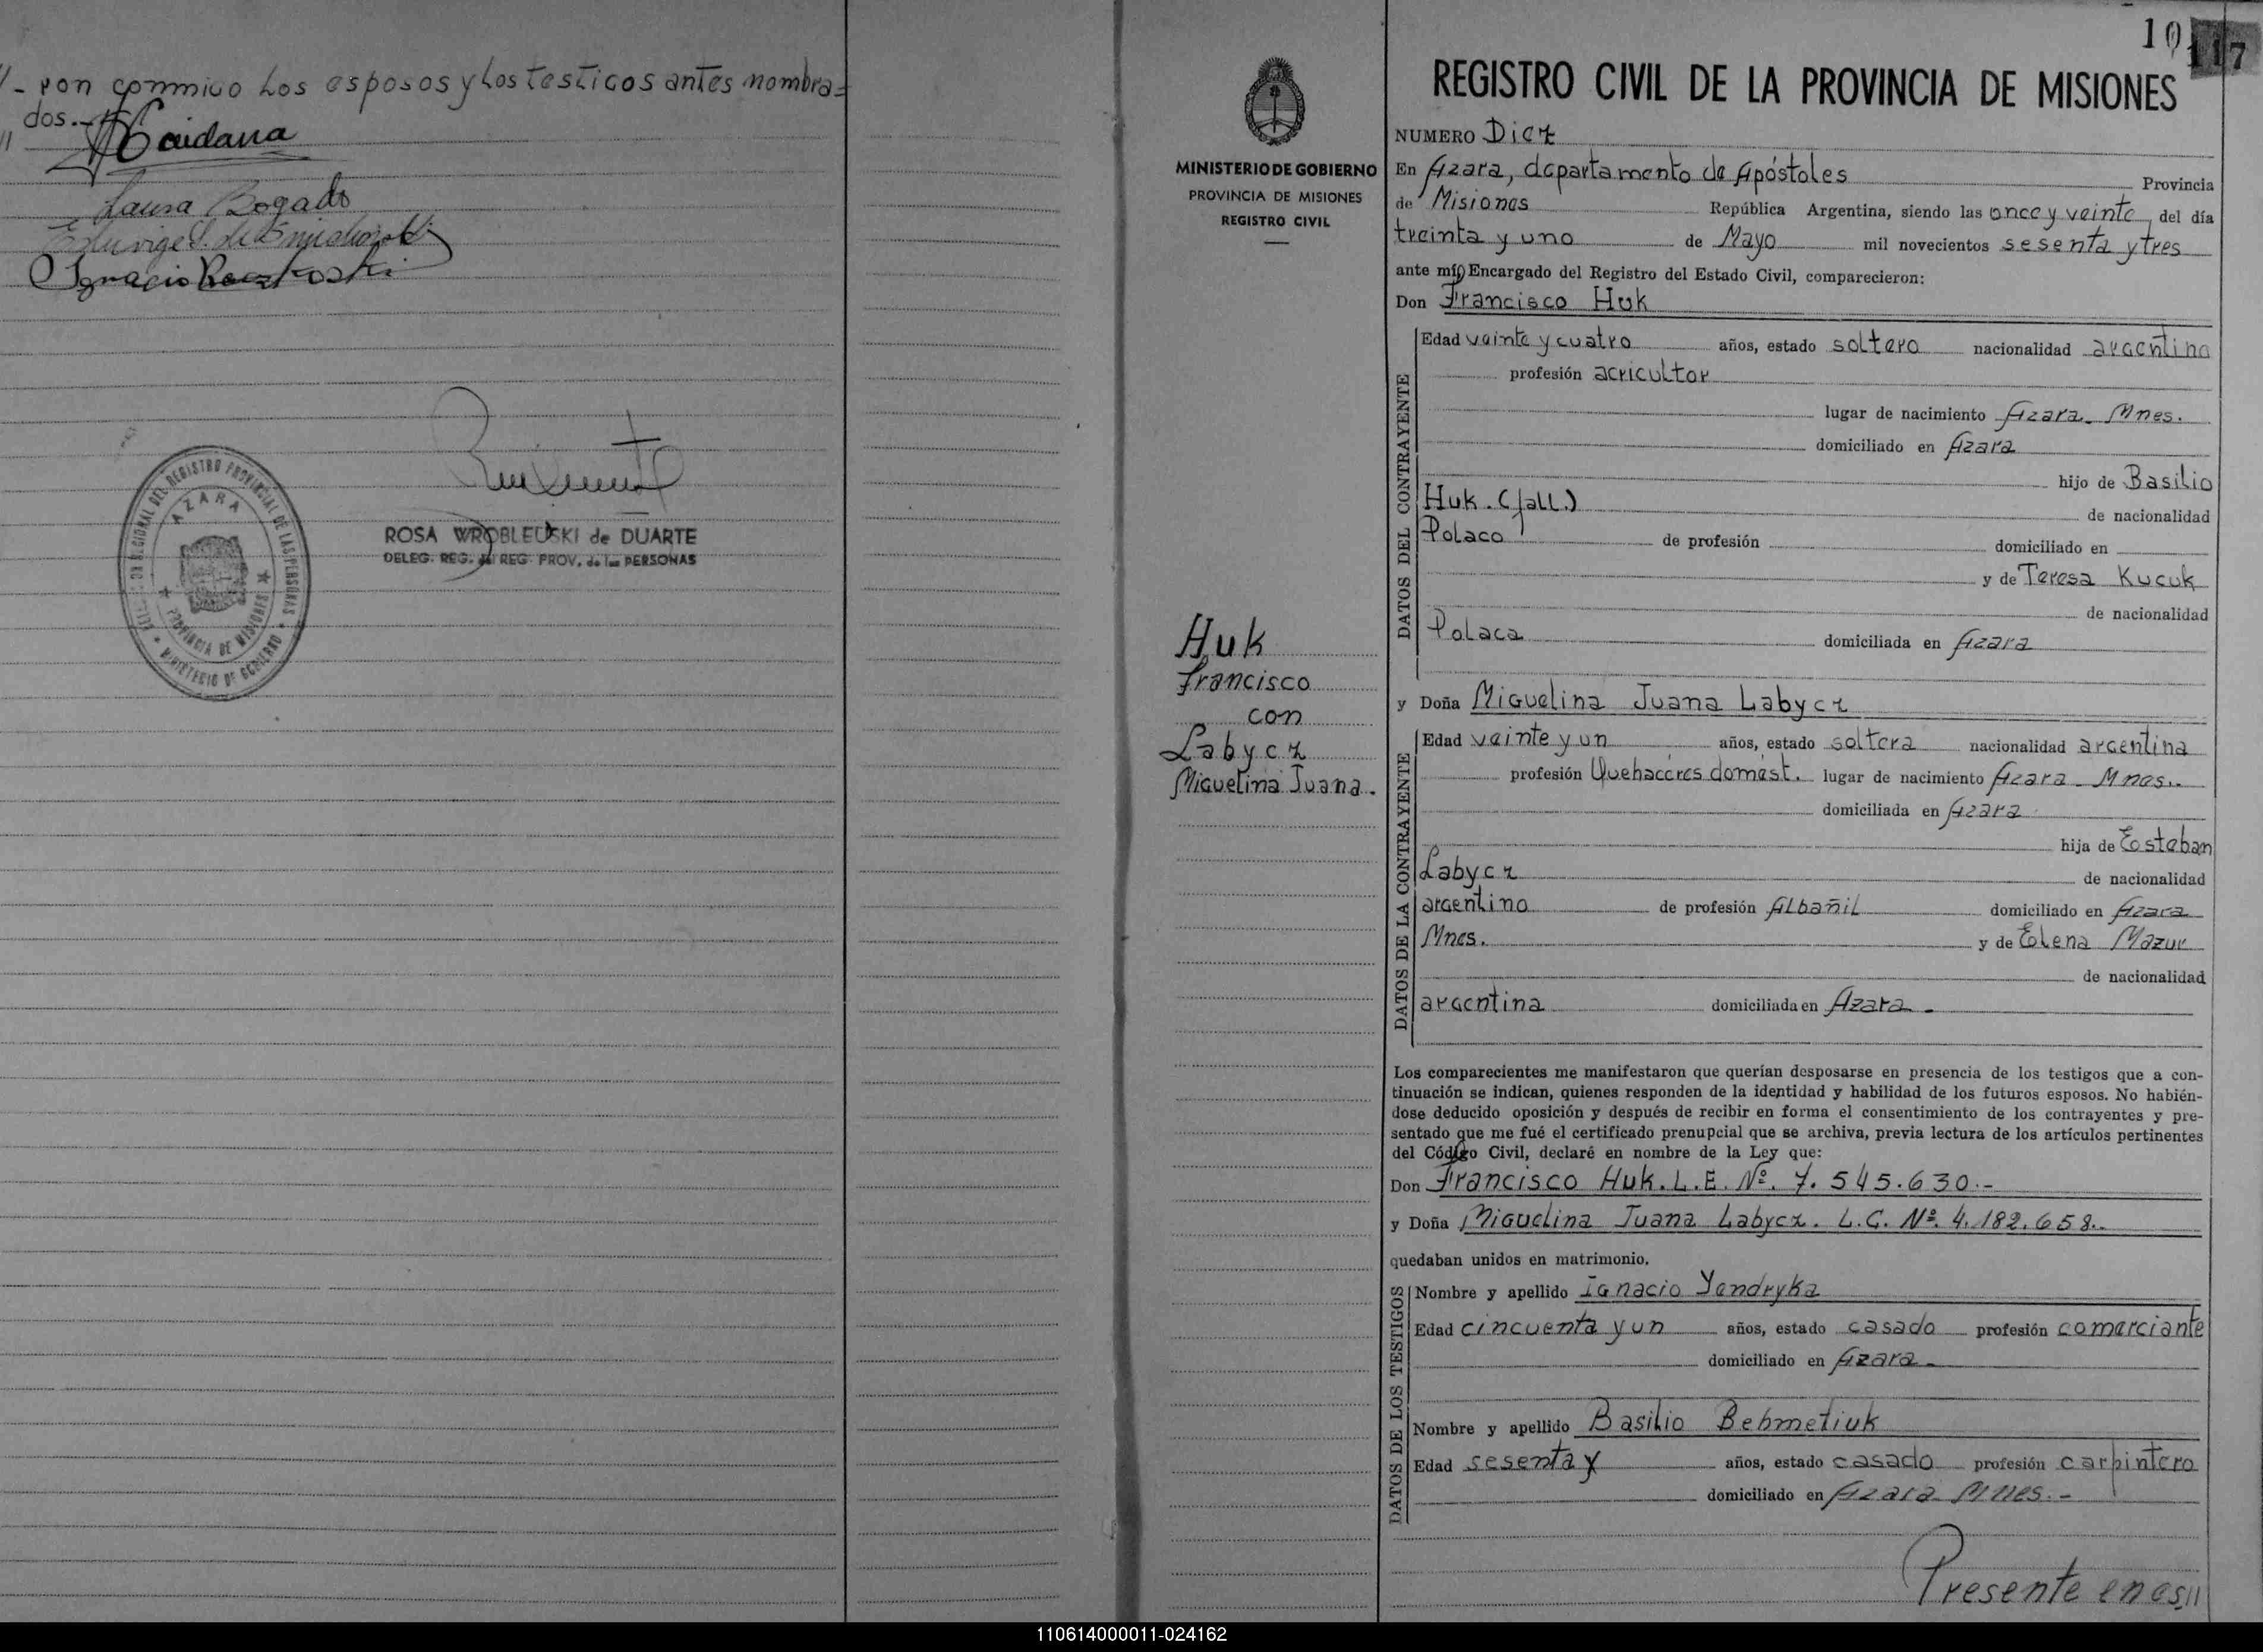 //- ron conmigo los esposos y los testigos antes nombra=
// dos.-
Laura Bogado
ROSA WROBLEUSKI de DUARTE
DELEG. REG. del REG. PROV. de las PERSONAS
DELEGACION REGIONAL DEL REGISTRO PROVINCIAL DE LAS PERSONAS
AZARA
PROVINCIA DE MISIONES
MINISTERIO DE GOBIERNO
MINISTERIO DE GOBIERNO
PROVINCIA DE MISIONES
REGISTRO CIVIL
Huk
Francisco
con
Labycz
Miguelina Juana.
10
117
REGISTRO CIVIL DE LA PROVINCIA DE MISIONES
NUMERO Diez
En Azara, departamento de Apóstoles Provincia
de Misiones República Argentina, siendo las once y veinte del día
treinta y uno de Mayo mil novecientos sesenta y tres
ante mí, Encargado del Registro del Estado Civil, comparecieron:
Don Francisco Huk
DATOS DEL CONTRAYENTE
Edad veinte y cuatro años, estado soltero nacionalidad argentino
profesión agricultor
lugar de nacimiento Azara. Mnes.
domiciliado en Azara
hijo de Basilio
Huk. (fall.) de nacionalidad
Polaco de profesión domiciliado en
y de Teresa Kucuk
de nacionalidad
Polaca domiciliada en Azara
y Doña Miguelina Juana Labycz
DATOS DE LA CONTRAYENTE
Edad veinte y un años, estado soltera nacionalidad argentina
profesión Quehaceres domést. lugar de nacimiento Azara - Mnes..
domiciliada en Azara
hija de Esteban
Labycz de nacionalidad
argentino de profesión Albañil domiciliado en Azara
Mnes. y de Elena Mazur
de nacionalidad
argentina domiciliada en Azara.
Los comparecientes me manifestaron que querían desposarse en presencia de los testigos que a con-
tinuación se indican, quienes responden de la identidad y habilidad de los futuros esposos. No habién-
dose deducido oposición y después de recibir en forma el consentimiento de los contrayentes y pre-
sentado que me fué el certificado prenupcial que se archiva, previa lectura de los artículos pertinentes
del Código Civil, declaré en nombre de la Ley que:
Don Francisco Huk. L.E. Nº. 7.545.630.-
y Doña Miguelina Juana Labycz. L.C. Nº. 4.182.658..
quedaban unidos en matrimonio.
DATOS DE LOS TESTIGOS
Nombre y apellido Ignacio Yendryka
Edad cincuenta y un años, estado casado profesión comerciante
domiciliado en Azara
Nombre y apellido Basilio Behmetiuk
Edad sesenta y años, estado casado profesión carpintero
domiciliado en Azara Mnes.-
Presente en es//
110614000011-024162